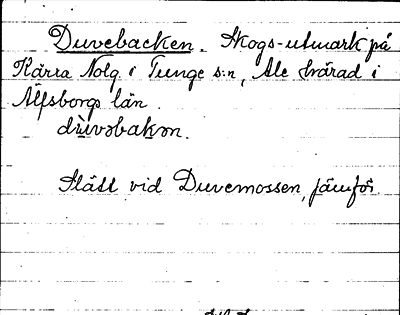 Duvebacken. Skogs-utmark på
Kärra Nolg. i Tunge s:n, Ale härad i
Älfsborgs län.
dùvəbakən.
Slätt vid Duvemossen, jämför